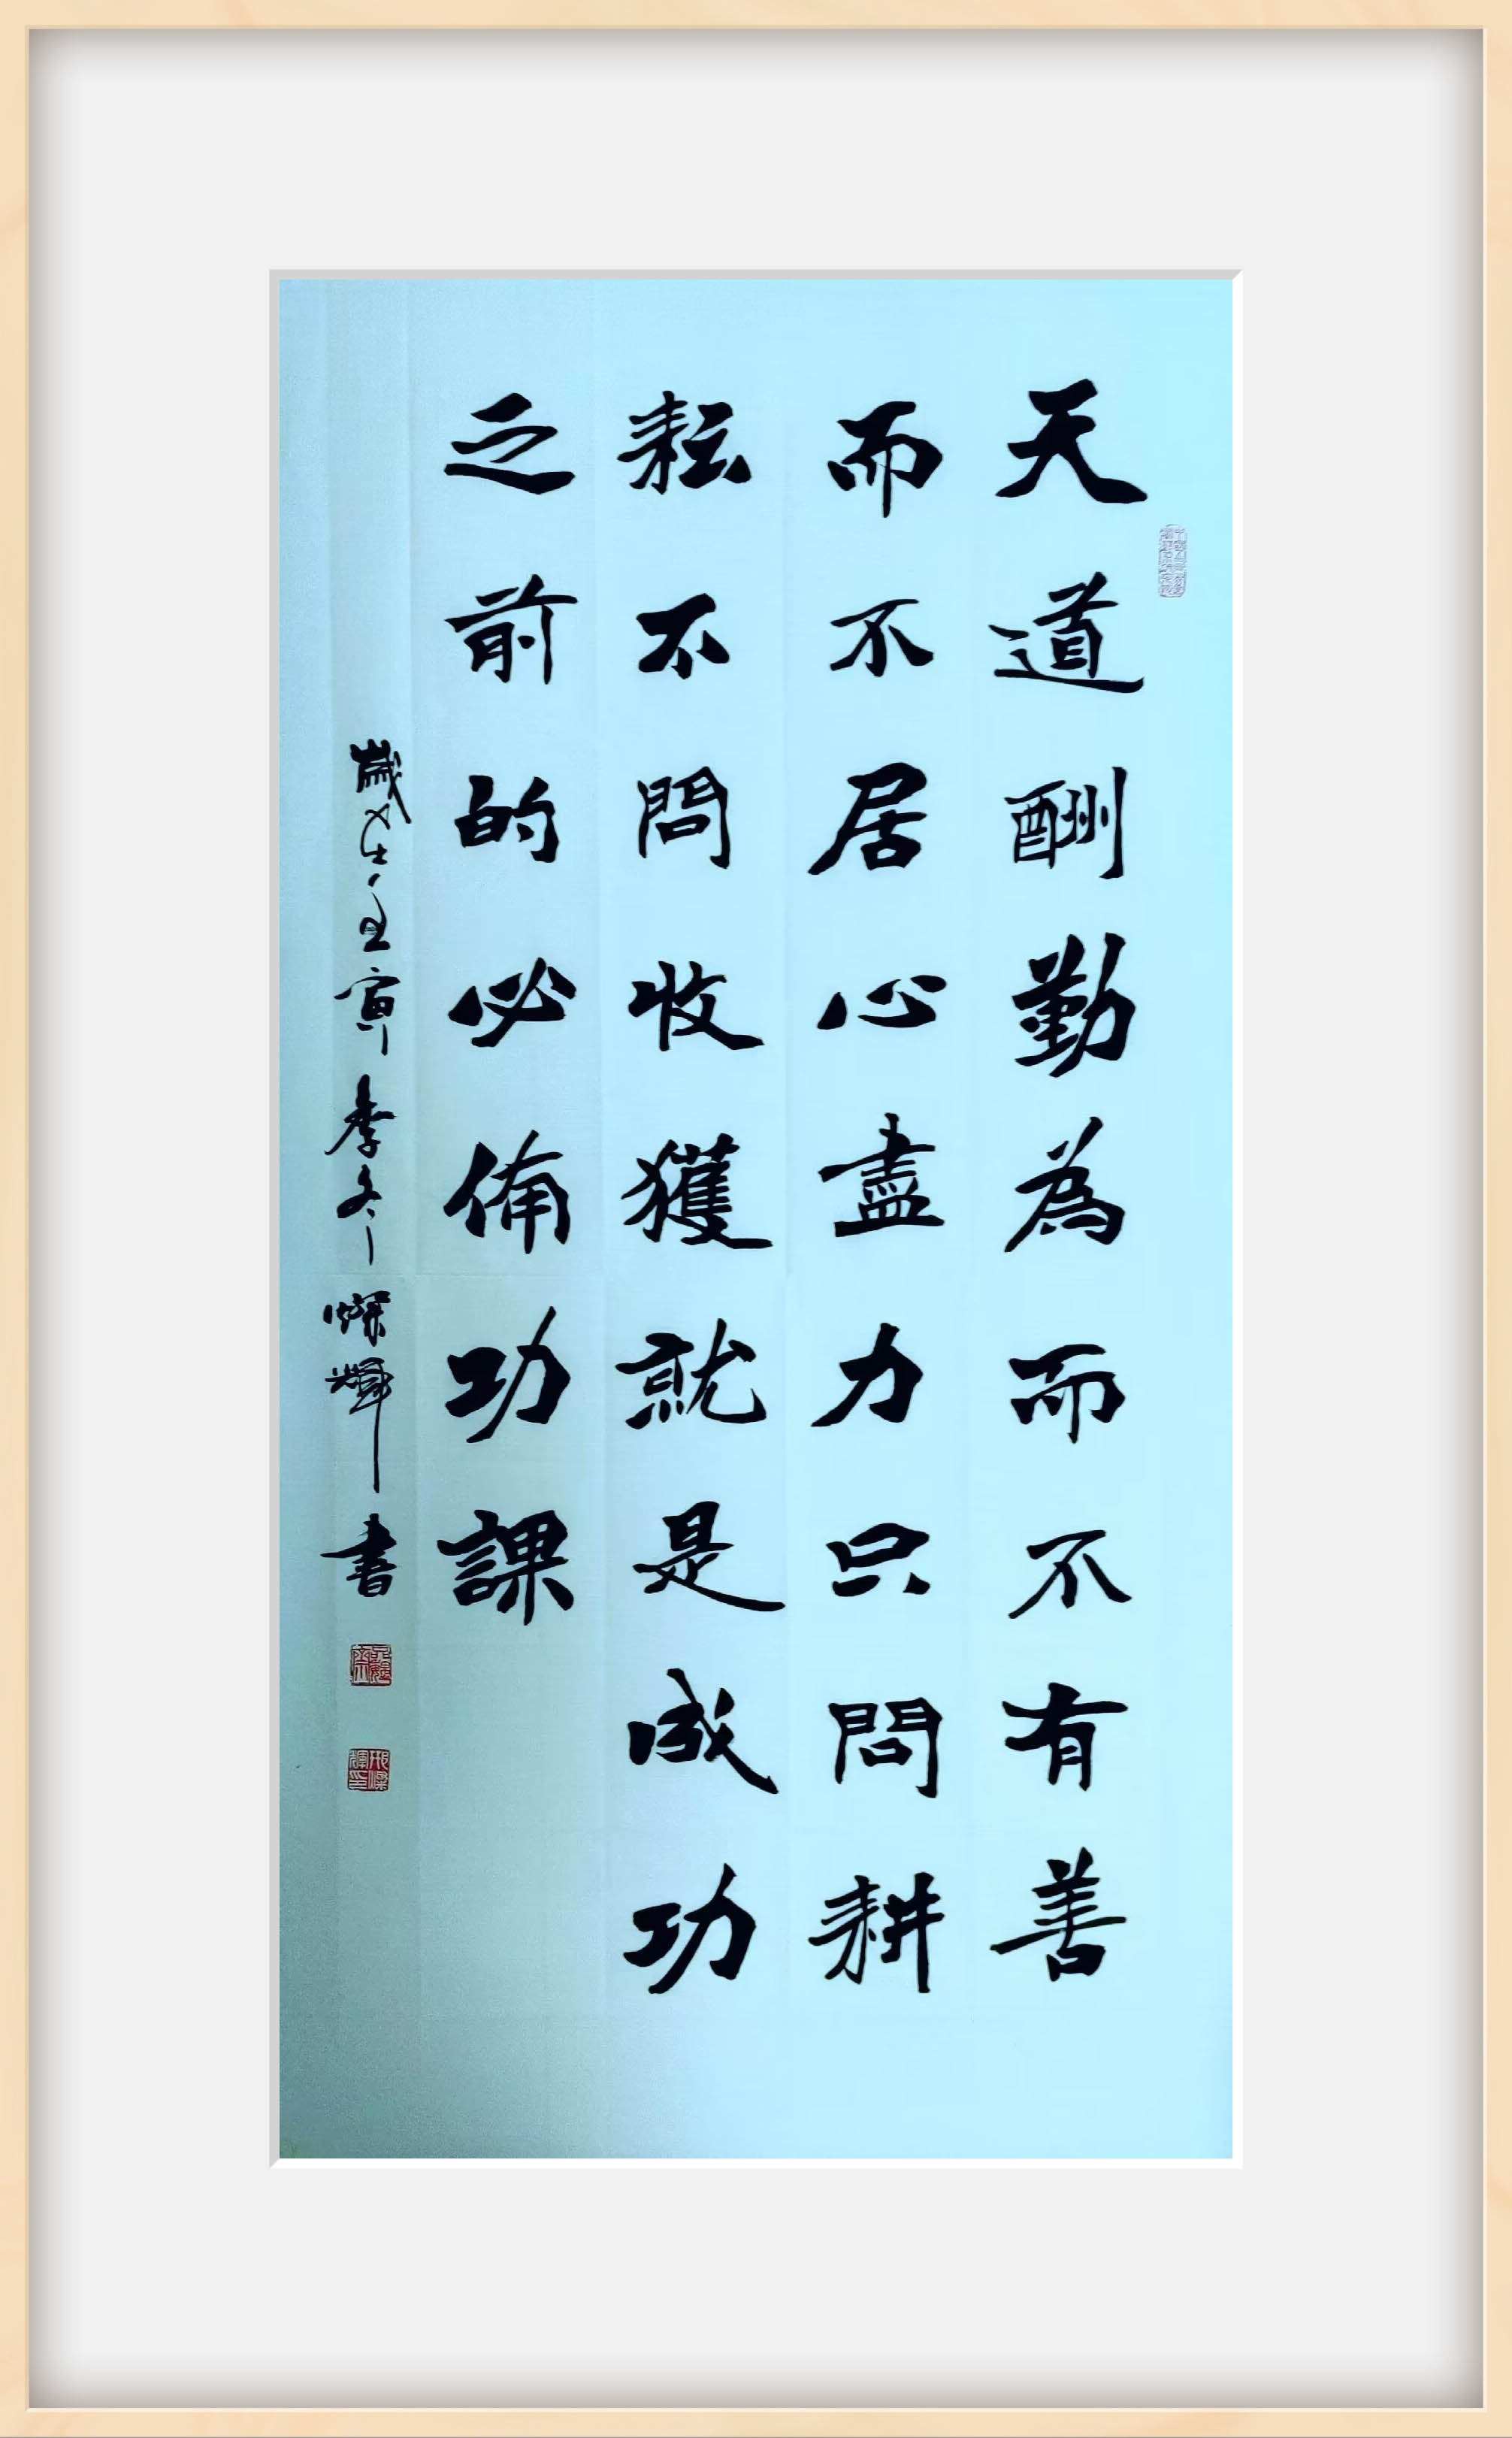 天道酬勤為而不有善
而不居心盡力只問耕
耘不問收獲就是成功
之前的必備功課
歲在壬寅季冬燦輝書